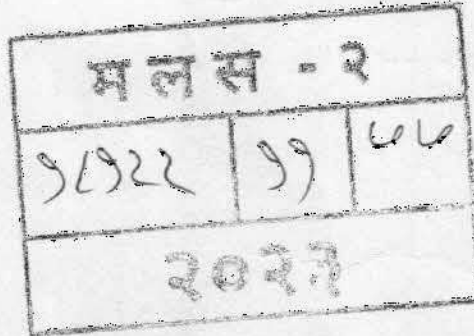 मलस - २
१८१२२ ११ ७७
२०२३